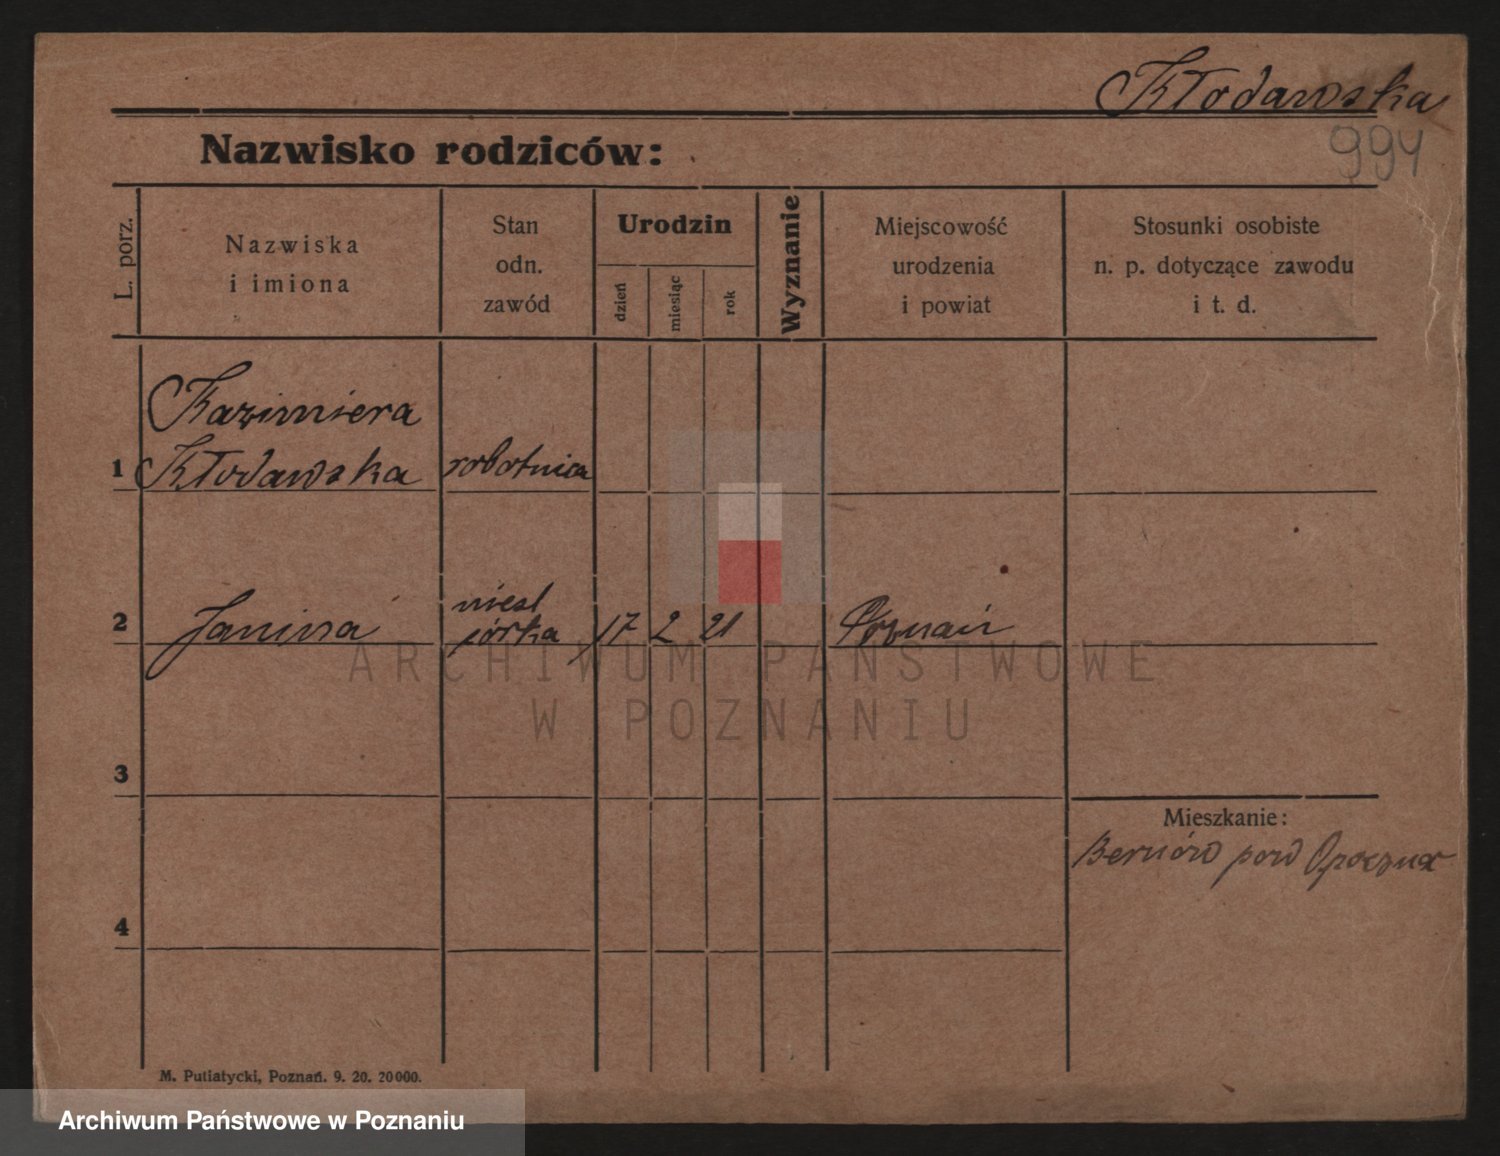 Kłodawska
994
Nazwisko rodziców:
L. porz.
Nazwiska
i imiona
Stan
odn.
zawód
Urodzin
dzień
miesiąc
rok
Wyznanie
Miejscowość
urodzenia
i powiat
Stosunki osobiste
n. p. dotyczące zawodu
i t. d.
Kazimiera
1 Kłodawska robotnica
nieśl
2 Janina córka 17 2 21 Poznań
ARCHIWUM PAŃSTWOWE
W POZNANIU
3
Mieszkanie:
pow Opoczna
4
M. Putiatycki, Poznań. 9. 20. 20000.
Archiwum Państwowe w Poznaniu